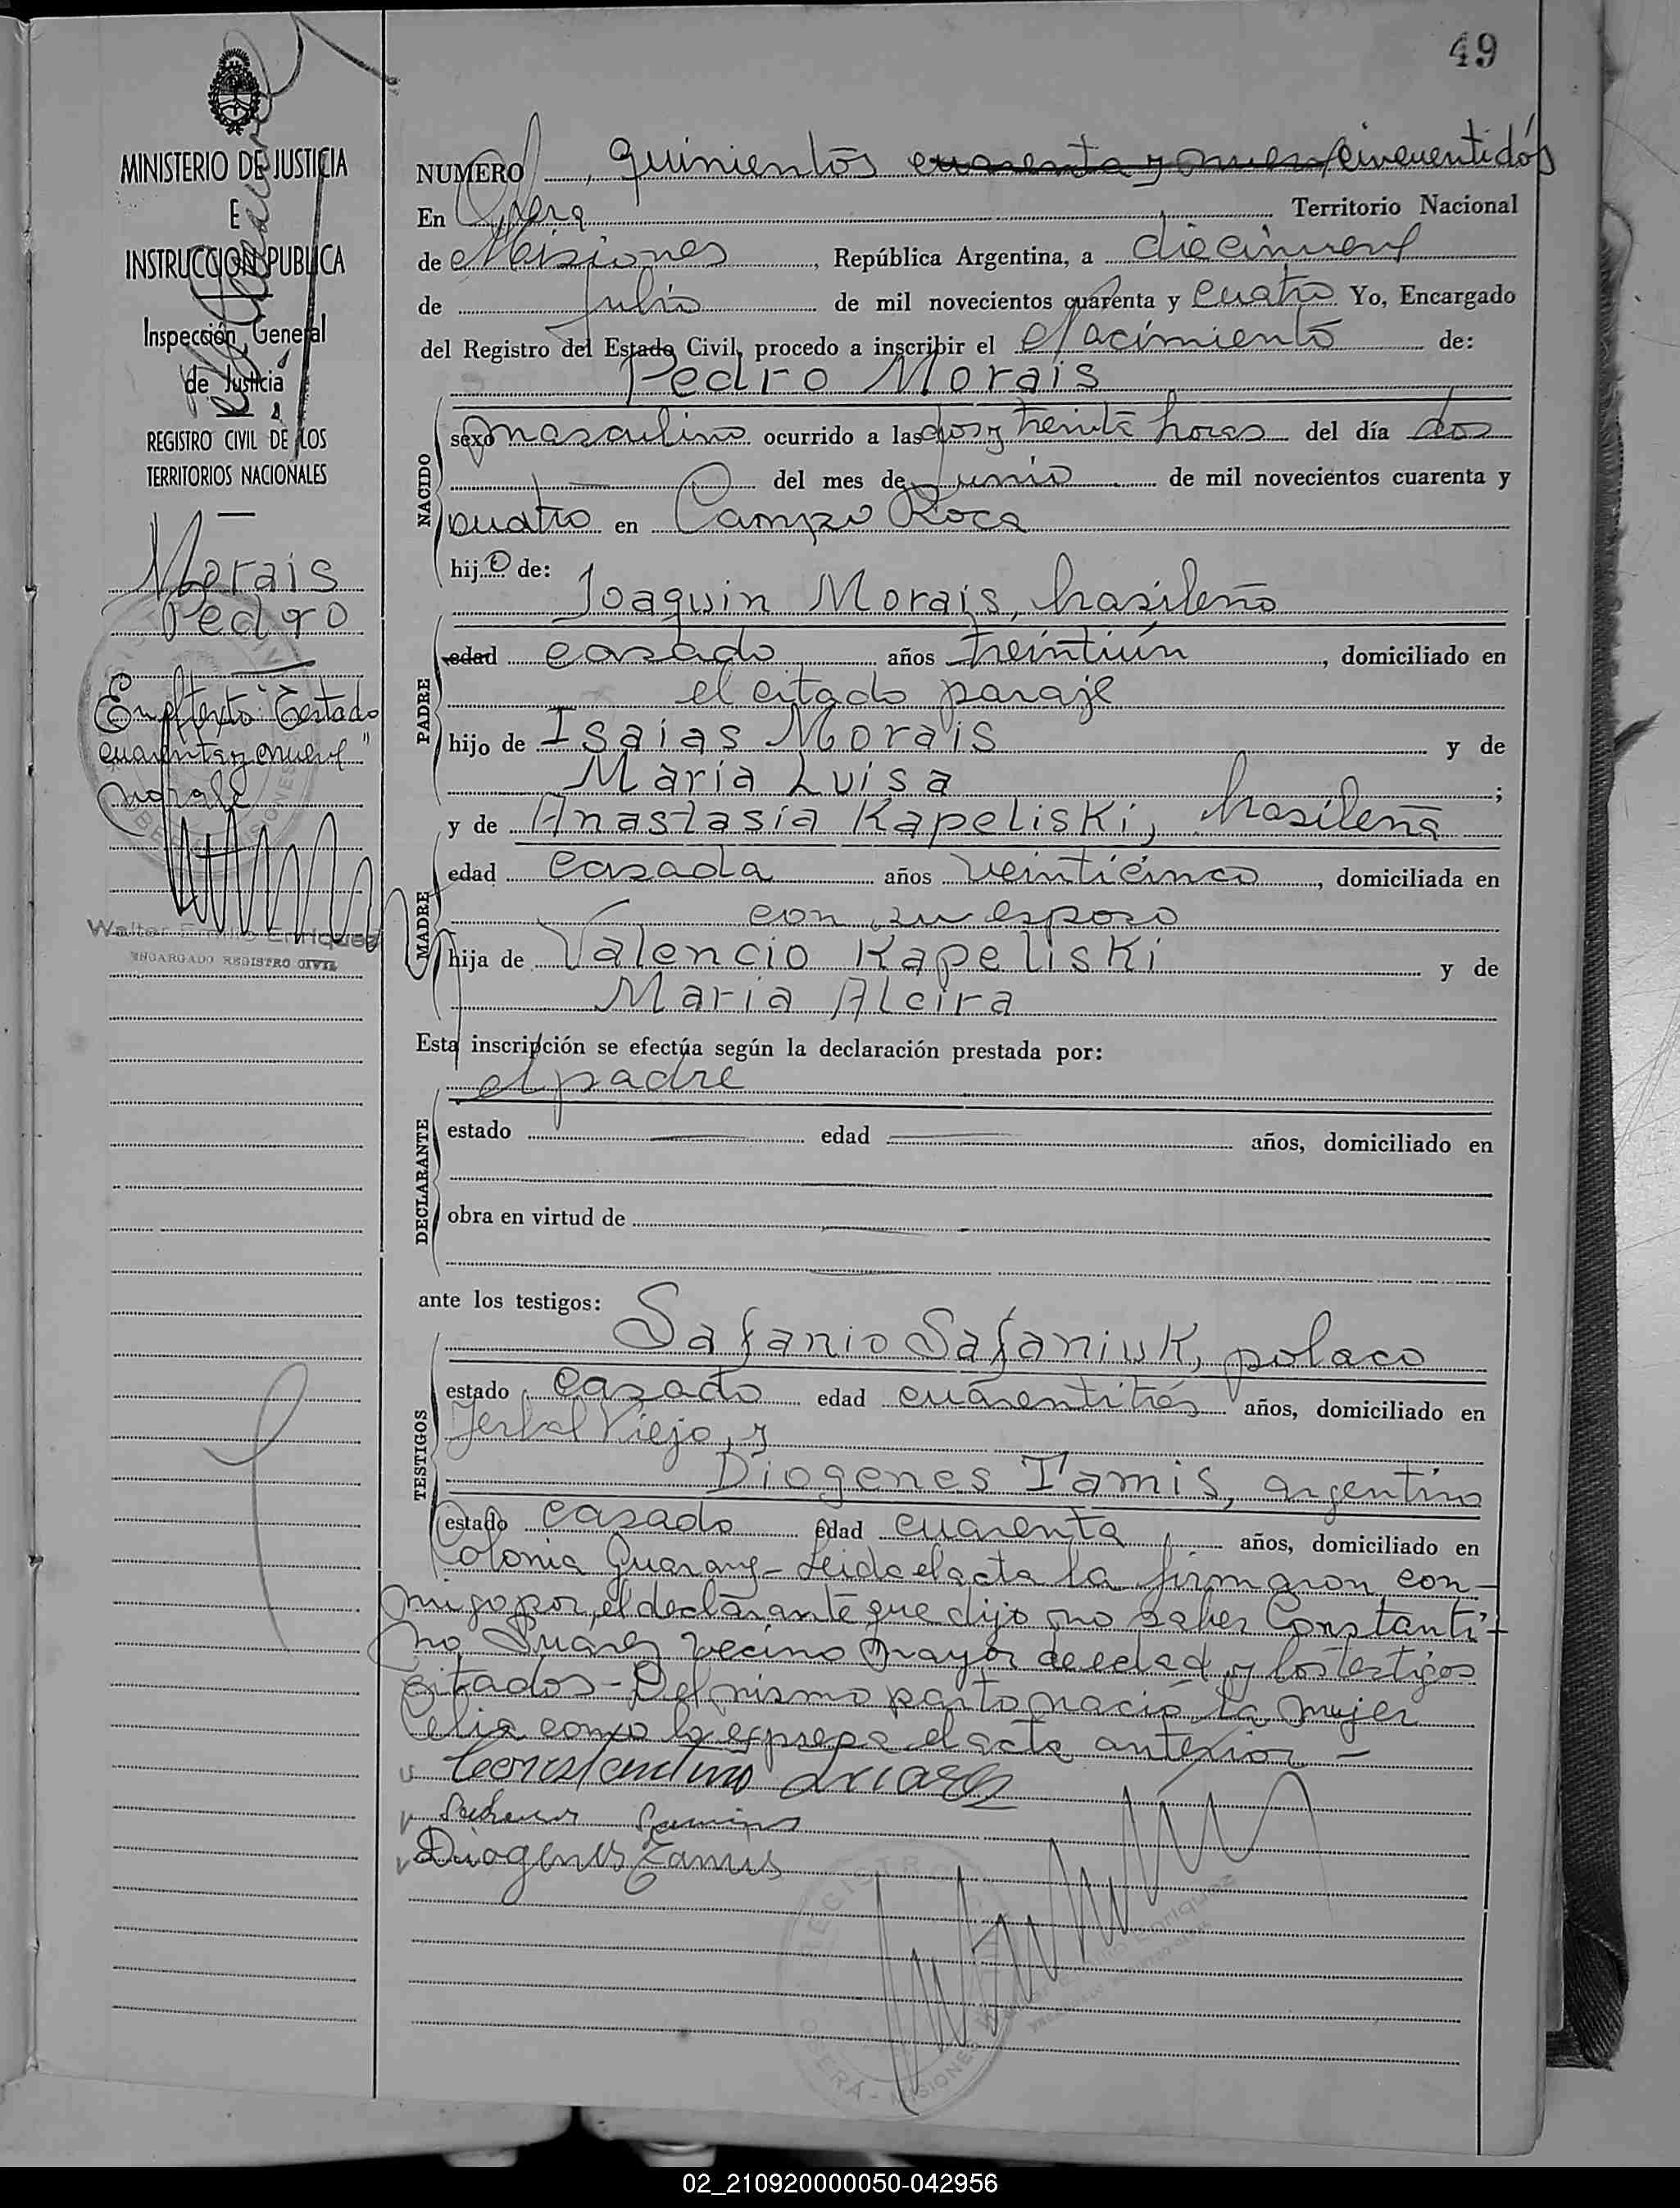 49
MINISTERIO DE JUSTICIA
E
INSTRUCCION PUBLICA
Inspección General
de Justicia
REGISTRO CIVIL DE LOS
TERRITORIOS NACIONALES
Morais
Pedro
En el texto: "Testado
cuarenta y nueve"
no vale
Walter Emilio Enriquez
ENCARGADO REGISTRO CIVIL
NUMERO quinientos cuarenta y nueve/cincuentidós
En Oberá Territorio Nacional
de Misiones, República Argentina, a diecinueve
de Julio de mil novecientos cuarenta y cuatro Yo, Encargado
del Registro del Estado Civil, procedo a inscribir el Nacimiento de:
Pedro Morais
NACIDO
sexo masculino ocurrido a las dos y treinta horas del día dos
del mes de Junio de mil novecientos cuarenta y
cuatro en Campo Roca
hijo de:
PADRE
Joaquin Morais, brasileño
edad casado años treintiún, domiciliado en
el citado paraje
hijo de Isaias Morais y de
María Luisa ;
MADRE
y de Anastasia Kapeliski, brasileña
edad casada años veinticinco, domiciliada en
con su esposo
hija de Valencio Kapeliski y de
Maria Alcira
Esta inscripción se efectúa según la declaración prestada por:
el padre
DECLARANTE
estado edad años, domiciliado en
obra en virtud de
ante los testigos:
TESTIGOS
Safanio Safaniuk, polaco
estado casado edad cuarentitrés años, domiciliado en
Yerbal Viejo, y
Diogenes Tamis, argentino
estado casado edad cuarenta años, domiciliado en
Colonia Guarany - Leida el acta la firmaron con-
migo por el declarante que dijo no saber Constanti-
no Suárez vecino mayor de edad y los testigos
citados - Del mismo parto nació la mujer
Celia como lo expresa el acta anterior -
Constantino Suarez
Diogenes Tamis